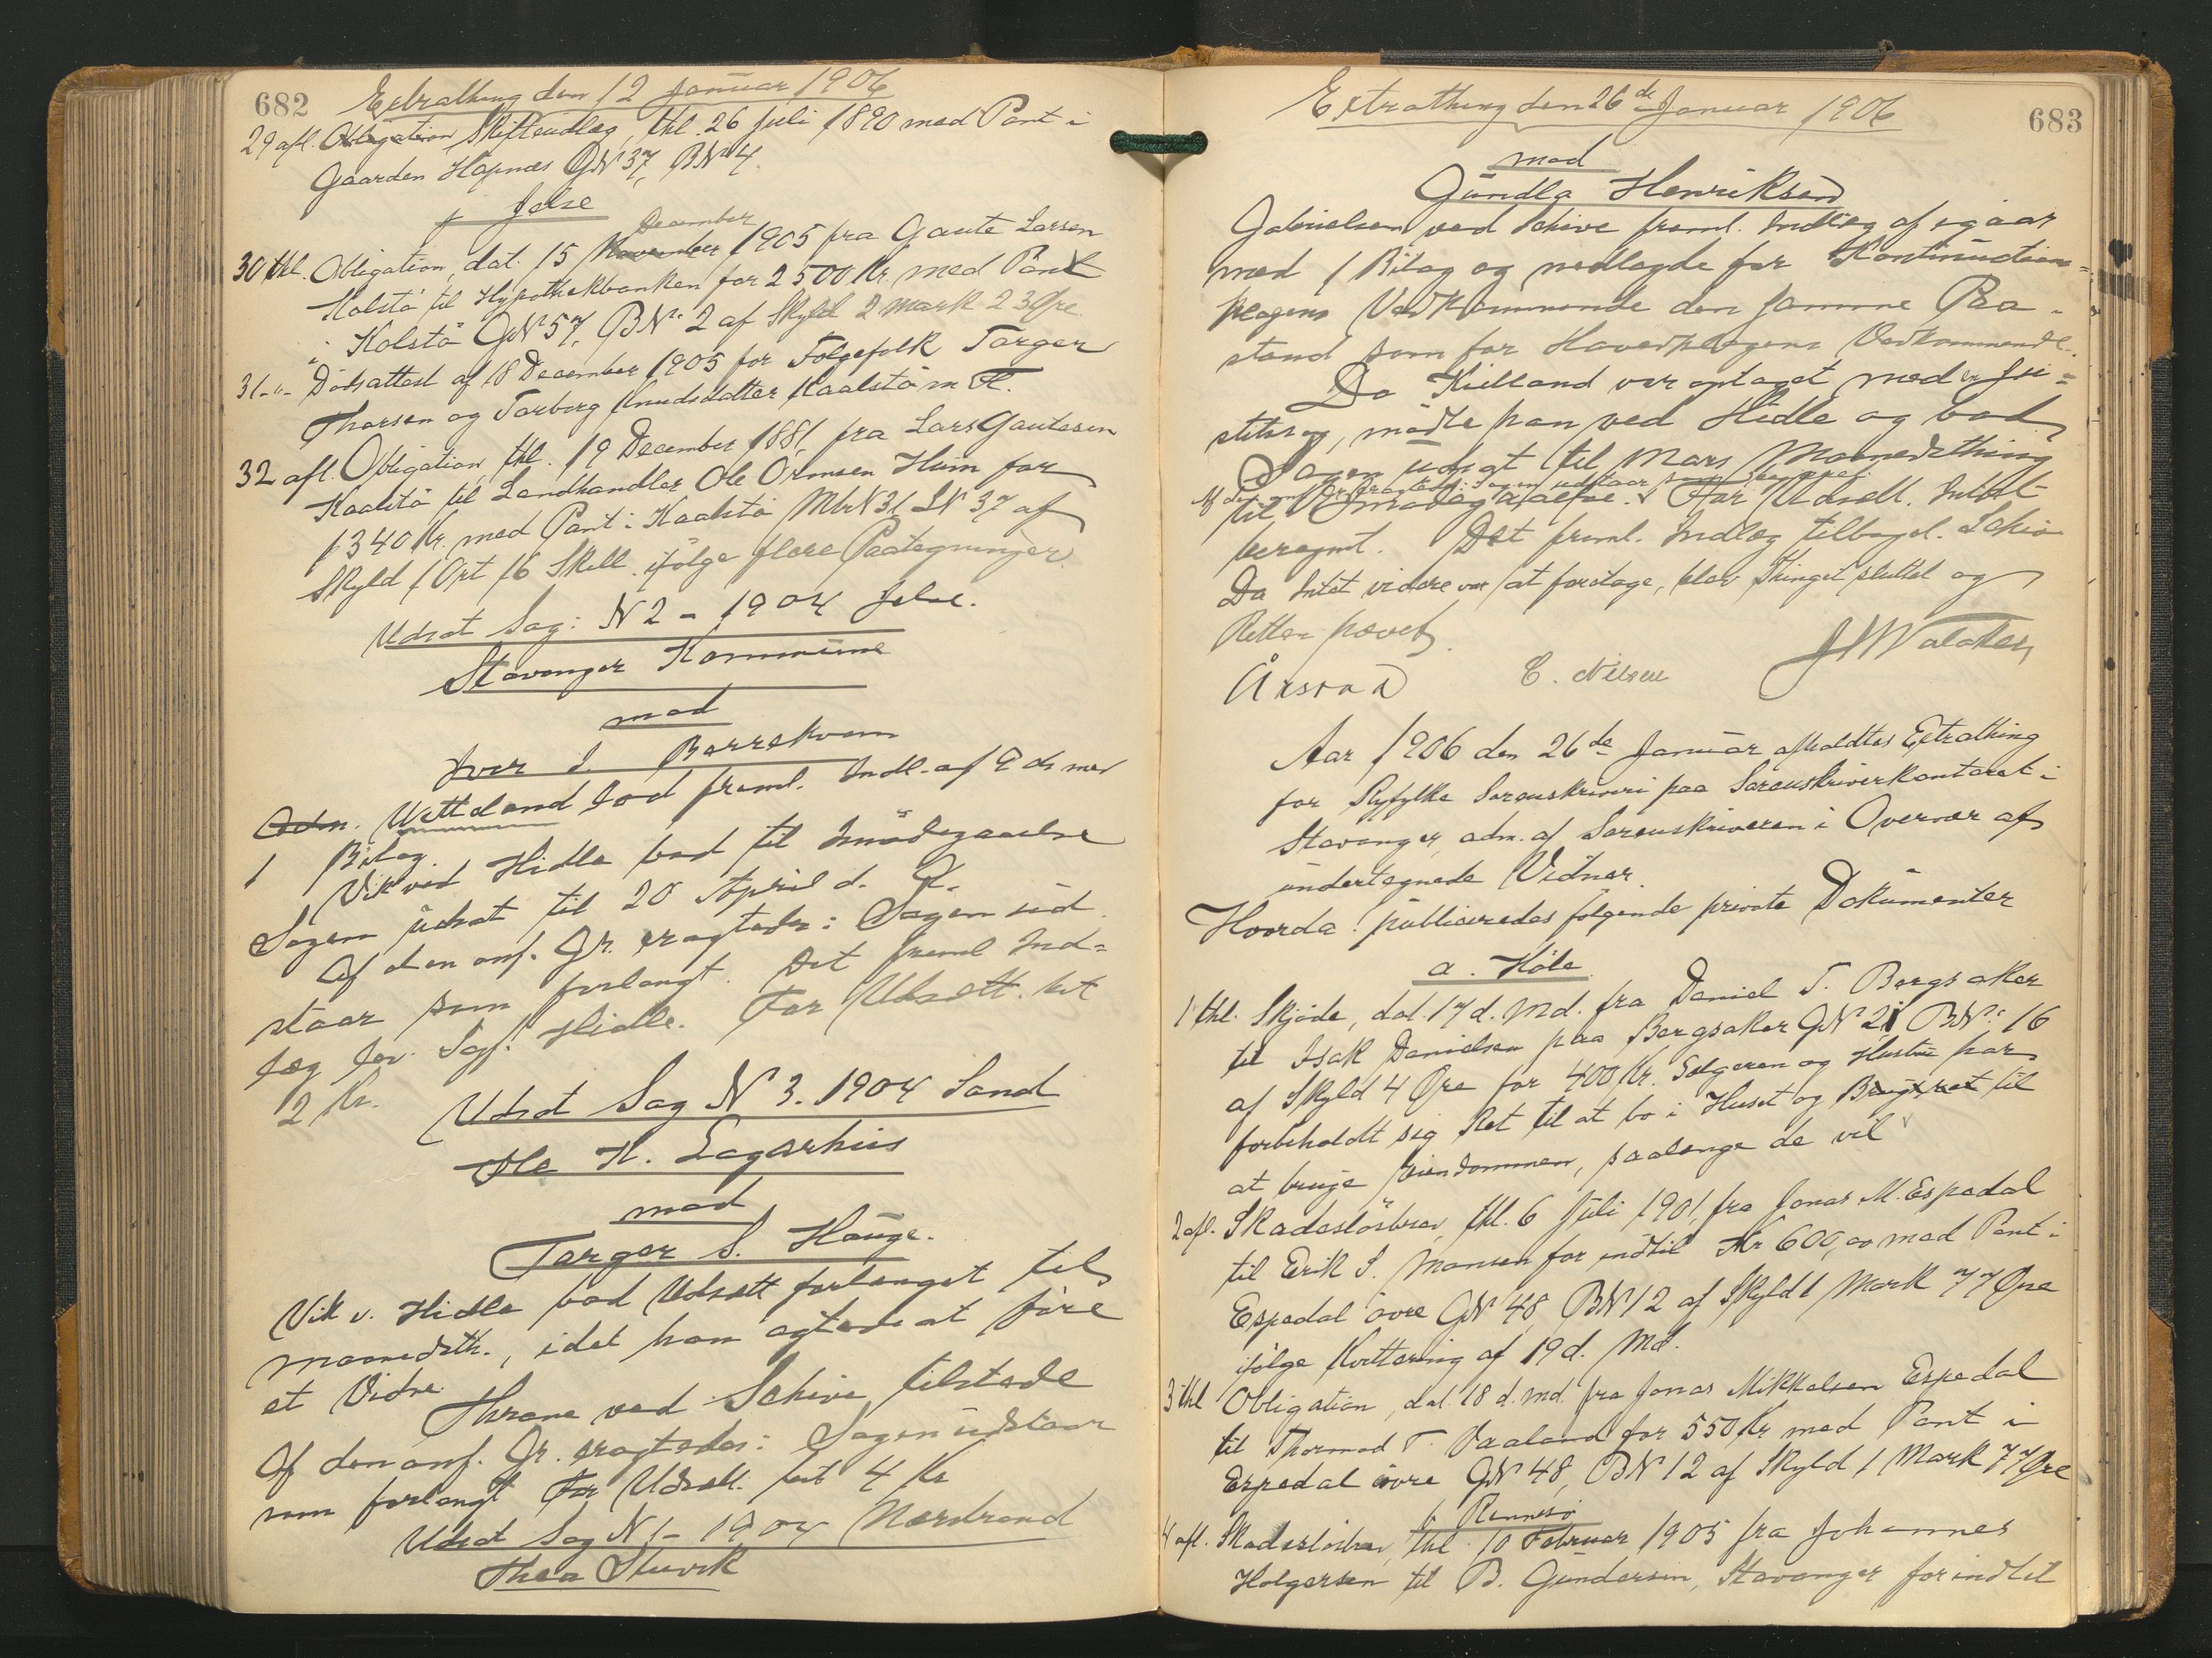 682 Extrathing den 12 Januar 1906
29 afl. Obligation, Skifteudlæg, thl. 26 Juli 1890 med Pant i
Gaarden Hapnæs GN 37, BN 4.
f Jelse
December
30 thl. Obligation, dat. 15 November 1905 fra Gaute Larsen
Kolstö til Hypothekbanken for 2500 Kr. med Pant
i Kolstö GN 57, BN. 2 af Skyld 2 Mark 23 Øre
31 -"- Dödsattest af 18 December 1905 for Folgefolk Torger
Thorsen og Torborg Knudsdatter Kaalstö m Fl.
32 afl. Obligation, thl. 19 December 1881, fra Lars Gautesen
Kaalstö til Landhandler Ole Ormsen Hüm for
1340 Kr. med Pant i Kaalstö MbrN 31 LN 37 af
Skyld 1 Ort 16 Skill. ifölge flere Paategninger.
Udsat Sag: N 2 - 1904 Jelse.
Stavanger Kommüne
mod
Iver I Berrekvam
Adm. Wetteland lod freml. Indl. af 9 ds med
1 Bilag.
Vik ved Hidle bad til Imödegaaelse
Sagen udsat til 20 April d. A.
Af den anf. Gr. eragtedes: Sagen ud
staar som forlangt. Det freml Ind=
læg lev. Sagf. Hidle. For Udsætt. bet
2 Kr.
Udsat Sag N 3. 1904 Sand
Ole K. Lagarhus
mod
Torger S. Hauge.
Vik v. Hidle bad Udsætt forlænget til
Maanedsth., idet han agtede at före
et Vidne.
Thrane ved Schive tilstede
Af den anf. Gr. eragtedes: Sagen üdstaar
som forlangt For Udsætt. bet 4 Kr
Udsat Sag N 1 - 1904 Nærstrand
Thea Stuvik
Extrathing den 26de Januar 1906 683
mod
Gündla Henriksen
Gabrielsen ved Schive freml. Indlæg af igaar
med 1 Bilag og nedlagde for Kontinuations=
klagens Vedkommende den samme Paa-
stand som for Hovedklagens Vedkommende.
Da Kielland var optaget med en Ju=
stitssag, mödte han ved Hidle og bad
Sagen udsat til Mars Maanedsthing
Af den anf. Gr. eragtedes: Sagen udstaar som begjæret
til Imödegaaelse. For Udsætt. Intet
beregnet. Det freml. Indlæg tilbagel. Schive
Da Intet videre var at foretage, blev Thinget sluttet og
Retten hævet.
Årsvad C. Nilsen
Aar 1906 den 26de Januar afholdtes Extrathing
for Ryfylke Sorenskriveri paa Sorenskriverkontoret i
Stavanger, adm. af Sorenskriveren i Overvær af
undertegnede Vidner.
Hvorda: publiceredes følgende private Dokumenter
a. Höle
1 thl. Skjöde, dat. 17 d. Md. fra Daniel T. Bergsaker
til Isak Danielsen paa Bergsaker GN 21 BN: 16
af Skyld 4 Øre for 400 Kr. Sælgeren og Hustru har
forbeholdt sig Ret til at bo i Huset og Brugsret til
at bruge Eiendommen, saalænge de vil
2 afl. Skadeslösbrev, thl. 6 Juli 1901, fra Jonas M. Espedal
til Erik S. Monsen for indtil Kr 600,00 med Pant i
Espedal övre GN 48, BN 12 af Skyld 1 Mark 77 Øre
ifölge Kvittering af 19 d. Md.
3 thl Obligation, dat. 18 d. Md. fra Jonas Mikkelsen Espedal
til Thormod T. Vaaland for 550 Kr med Pant i
Espedal övre GN 48, BN 12 af Skyld 1 Mark 77 Øre
b Rennesö
4 afl. Skadeslösbrev, thl. 10 Februar 1905 fra Johannes
Holgersen til B. Gündersen, Stavanger for indtil